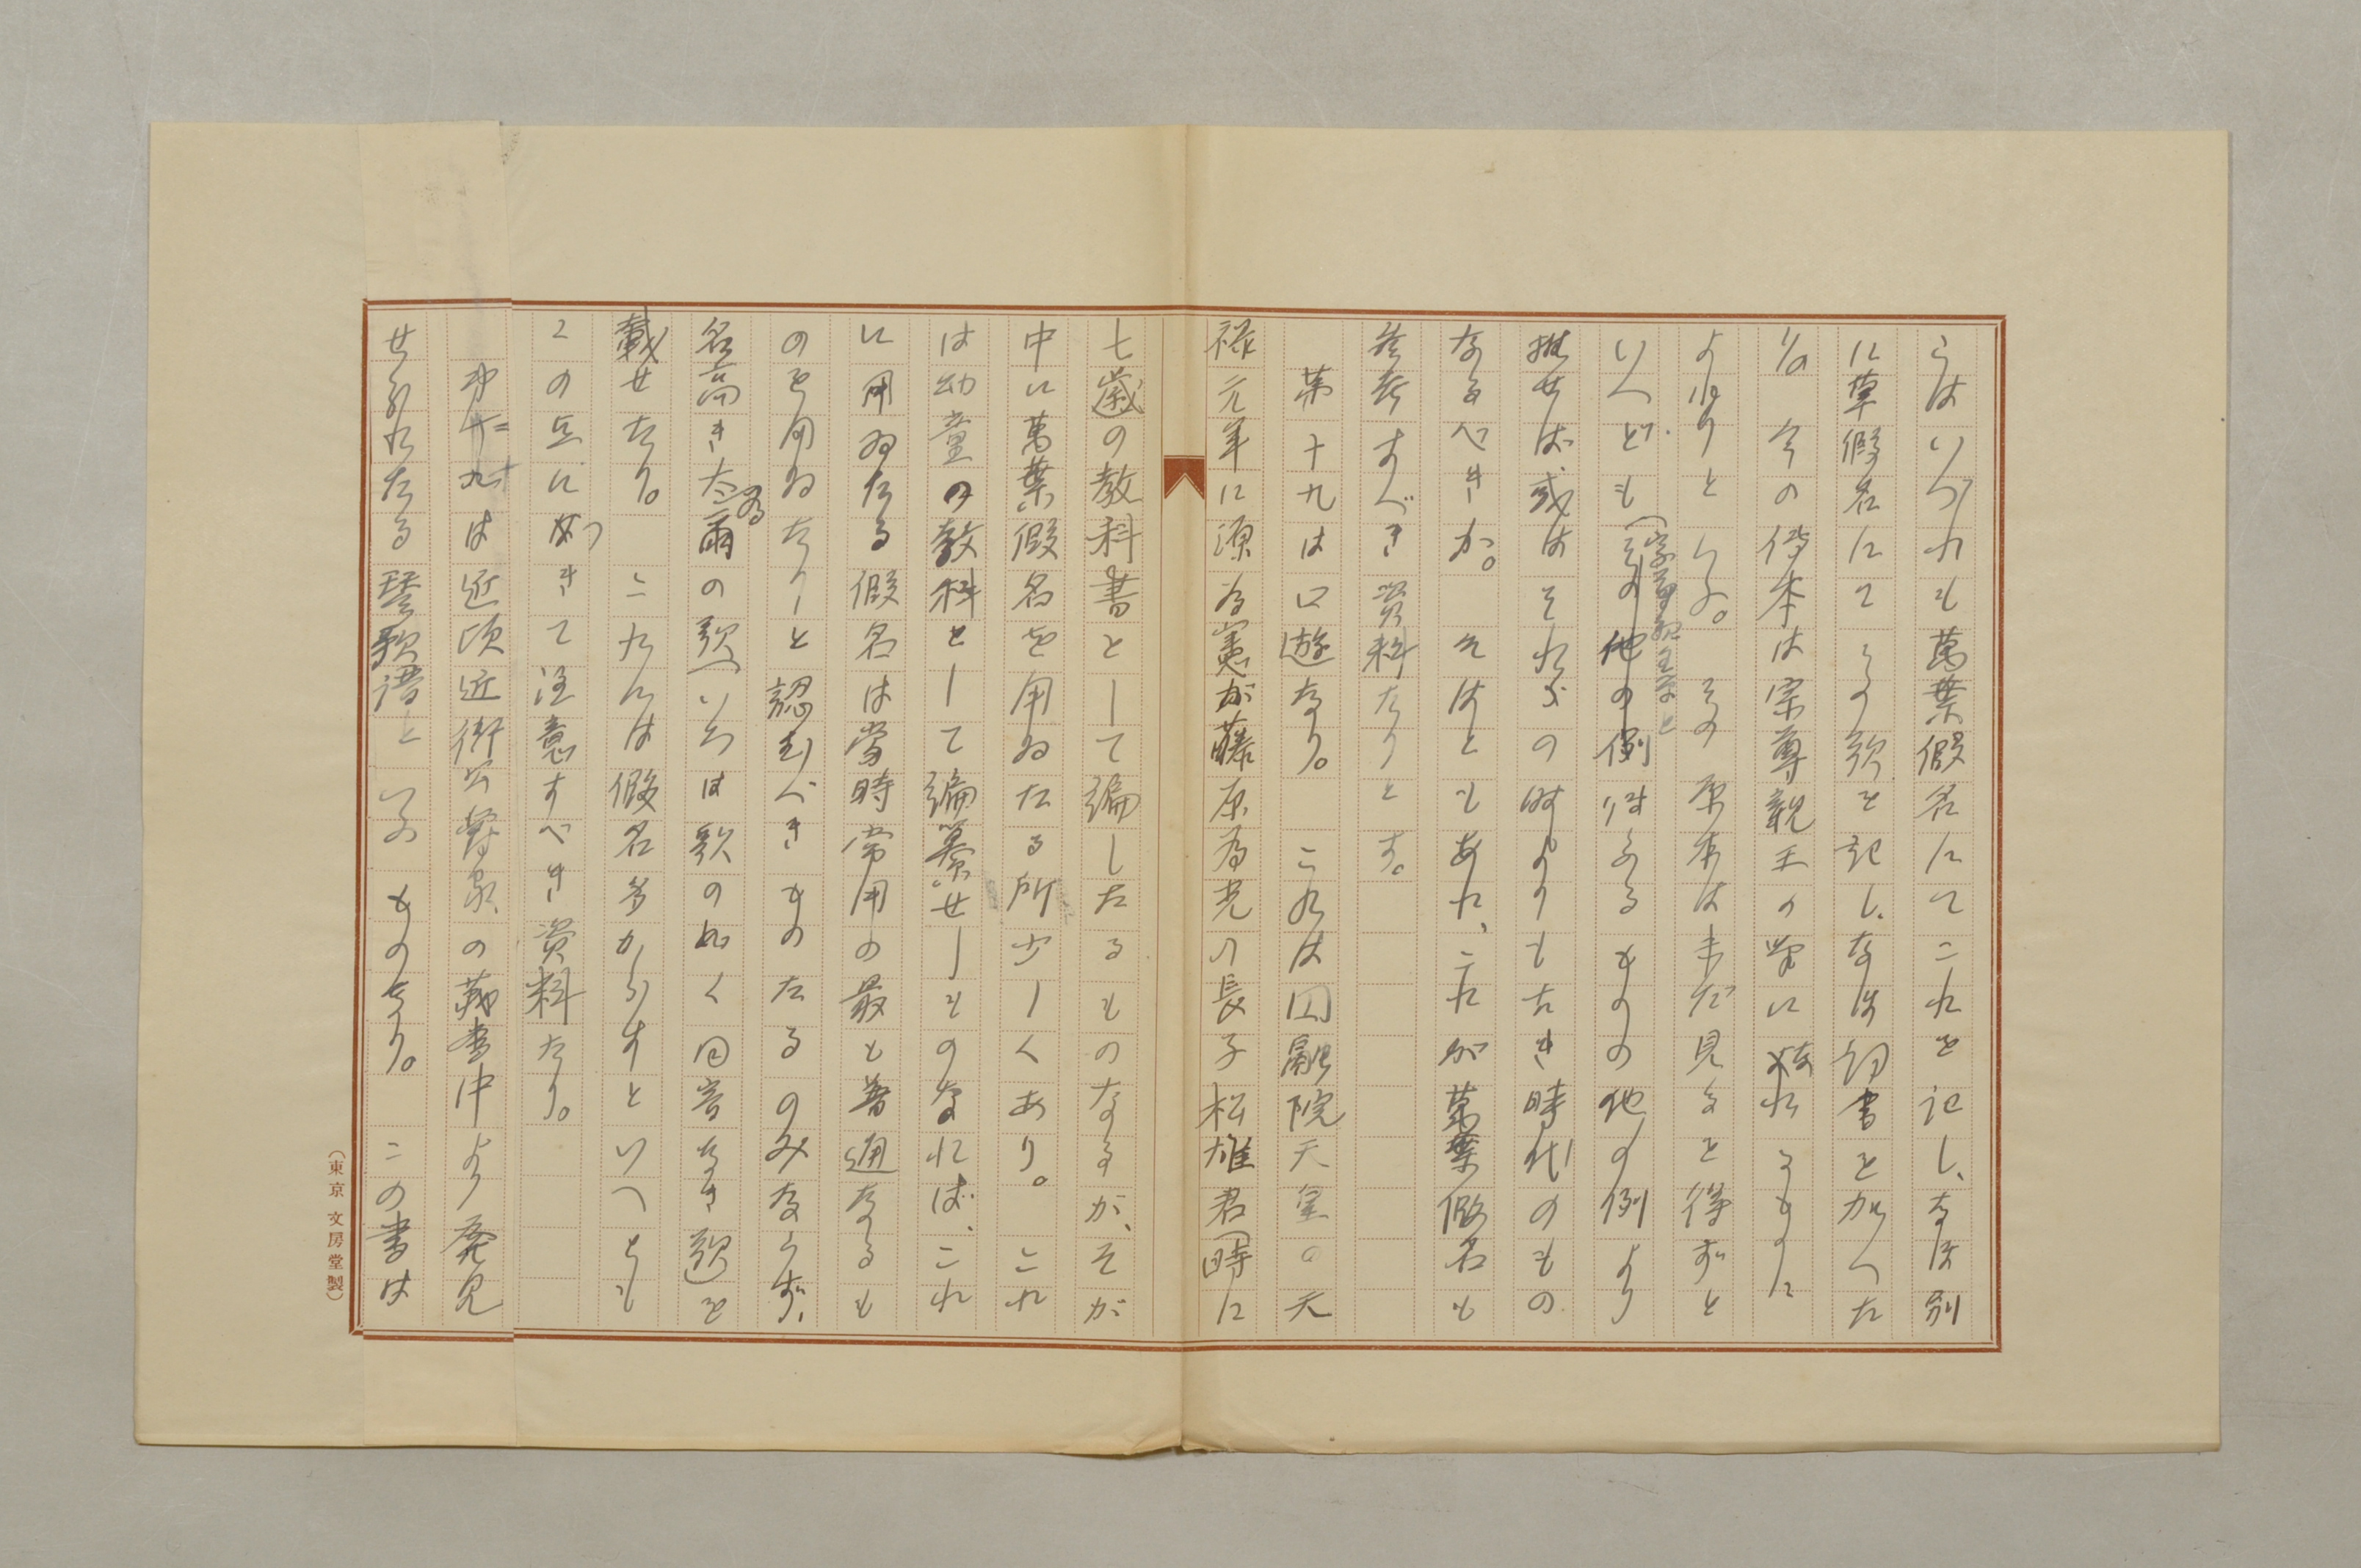 らはいづれも萬葉假名にてこれを記し、なほ別
に草假名にてその歌を記し、なほ詞書を加へた
り。今の傳本は宗尊親王の筆に成れるものに
よれりといふ。その原本は未だ見るを得ずと
いへども(宗尊親王筆と他の例
推せば或はそれよりも古き時代のもの
なるべきか。そはともあれ、これが萬葉假名も
參考すべき資料たりとす。
第十九は口遊なり。これは円融院天皇の天
祿元年に源為憲が藤原為光の長子松雄君(時に
七歳の教科書として編したるものなるが、そが
中に萬葉假名を用ゐたる所少しくあり。これ
は幼童の教科として編纂せしものなれば、これ
に用ゐたる假名は當時常用の最も普通なるも
のを用ゐたりと認むべきものたるのみならず、
名高き大為爾の歌(いろは歌の如く同音なき歌)を
載せたり。これらは假名多からずといへども
この点につきて注意すべき資料たり。
第二十は近頃近衛公爵家の藏書中より發見
せられたる琴歌譜といふものなり。この書は
(東京 文房堂製)